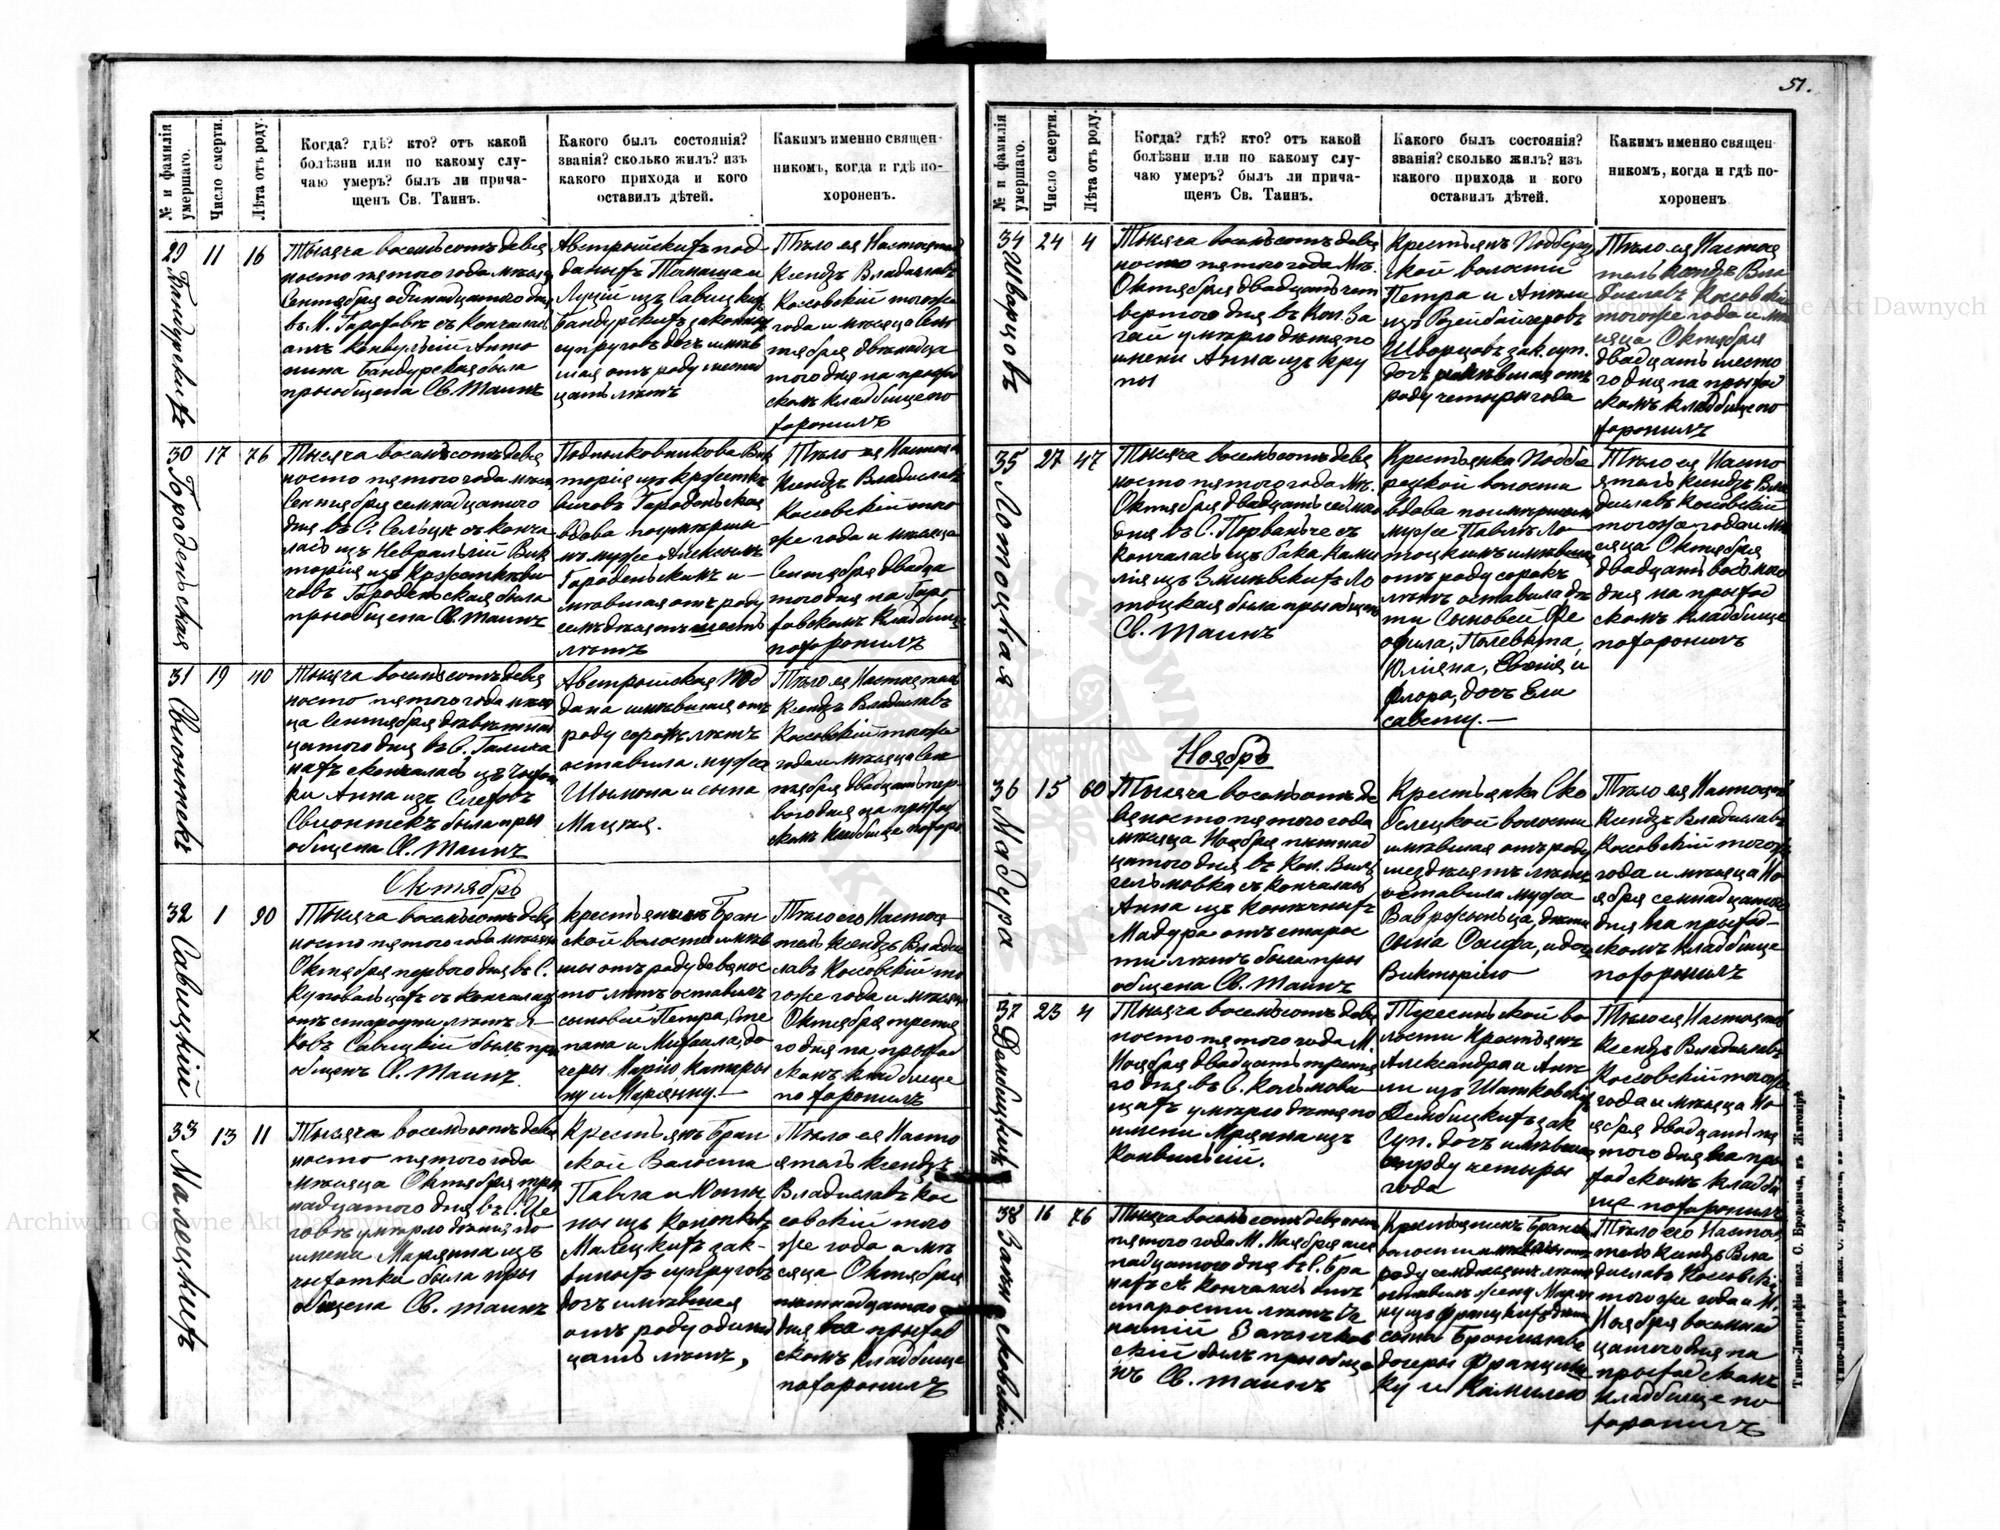 51.
№ и фамилія умершаго.
Число смерти.
Лѣта отъ роду.
Когда? гдѣ? кто? отъ какой
болѣзни или по какому слу-
чаю умеръ? былъ ли прича-
щенъ Св. Таинъ.
Какого былъ состоянія?
званія? сколько жилъ? изъ
какого прихода и кого
оставилъ дѣтей.
Какимъ именно священ-
никомъ, когда и гдѣ по-
хороненъ.
29 Бандурскихъ
11
16
Тысяча восемьсотъ девя
носто пятого года мѣсяца
Сентября одинадцатого дня
въ М. Гороховѣ скончалась
отъ конвульсій Анто
нина Бандурская была
пріобщена Св. Таинъ
Австрыйскихъ под
даныхъ Томаша и
Луціи изъ Савицкихъ
Бандурскихъ законныхъ
супруговъ дочъ имѣв
шая отъ роду шестнад
цать лѣтъ
Тѣло ея Настоятель
Ксендзъ Владиславъ
Коссовскій тогоже
года и мѣсяца Сен
тября двѣнадца
того дня на прыход
скомъ кладбище по
хоронилъ
30 Городенская
17
76
Тысяча восемьсотъ девя
носто пятого года мѣсяца
Сентября семнадцатого
дня въ С. Сельцѣ сконча
лась изъ Невральгіи Вик
торія изъ
Городенская была
пріобщена Св. Таинъ
Подполковникова Вик
торія изъ
Городенская
вдова по умершы
мъ мужѣ Алексѣемъ
Городенскимъ и —
мѣвшая отъ роду
семьдесятъ шесть
лѣтъ
Тѣло ея Настоятель
Ксендзъ Владиславъ
Коссовскій того
же года и мѣсяца
Сентября двадца
того дня на Горо
ховскомъ кладбище
похоронилъ
31 Свіонтекъ
19
40
Тысяча восемьсотъ девя
носто пятого года мѣся
ца Сентября девятнад
цатого дня въ С.
скончалась изъ
Анна изъ
Свіонтекъ была пры
общена Св. Таинъ
Австрыйская Под
дана имѣвшая отъ
роду сорокъ лѣтъ
оставила мужа
Шымона и сына
Мацея.
Тѣло ея Настоятель
Ксендзъ Владиславъ
Коссовскій тогоже
года и мѣсяца Сен
тября двадцать пер-
вого дня на прыход
скомъ кладбище похоро
Октябрь
32 Савицкій
1
90
Тысяча восемьсотъ девя
носто пятого года мѣсяца
Октября первого дня въ С.
скончался
отъ старости лѣтъ Я-
ковъ Савицкій былъ при
общенъ Св. Таинъ
Крестьянинъ Бран
ской волости имѣв
шы отъ роду девянос
то лѣтъ оставилъ
сыновей Петра, Сте
пана и Михаила, до
черы Марію Катеры
ну и Марянну. —
Тѣло его Настоя-
тель Ксендзъ Влади
славъ Коссовскій то
гоже года и мѣсяца
Октября третя
го дня на прыход
скомъ кладбище
похоронилъ
33 Малецкихъ
13
11
Тысяча восемьсотъ девя
носто пятого года
мѣсяца Октября три
надцатого дня въ С.
умерло дитя по
имени Марянна изъ
чахотки была пры
общена Св. Таинъ
Крестьянъ Бран
ской Волости
Павла и
изъ
Малецкихъ зак-
онныхъ супруговъ
дочъ имѣвшая
отъ роду одинад
цать лѣтъ,
Тѣло ея Насто
ятель Ксендзъ
Владиславъ Кос
совскій того
же года и мѣ
сяца Октября
пятнадцатого
дня на прыход
скомъ кладбище
похоронилъ
№ и фамилія умершаго.
Число смерти.
Лѣта отъ роду.
Когда? гдѣ? кто? отъ какой
болѣзни или по какому слу-
чаю умеръ? былъ ли прича-
щенъ Св. Таинъ.
Какого былъ состоянія?
званія? сколько жилъ? изъ
какого прихода и кого
оставилъ дѣтей.
Какимъ именно священ-
никомъ, когда и гдѣ по-
хороненъ
34 Шварцовъ
24
4
Тысяча восемьсотъ девя
носто пятого года Мѣ.
Октября двадцать чет
вертого дня въ Кол. За
гай умерло дитя по
имени Анна изъ кру
пы
Крестьянъ Подберез
ской волости
Петра и Анели
изъ
Шварцовъ зак. суп.
дочъ имѣвшая отъ
роду четыры года
Тѣло ея Настоя
тель Ксендзъ Вла
диславъ Коссовскій
тогоже года и мѣ
сяца Октября
двадцать шесто
го дня на прыход
скомъ кладбище по
хоронилъ
35 Лотоцкая
27
47
Тысяча восемьсотъ девя
носто пятого года Мѣ.
Октября двадцать седьмого
дня въ С. с
кончалась изъ Рака Ками
лія изъ Змиевскихъ Ло
тоцкая была прыобщена
Св. Таинъ
Крестьянка Подбе
рецкой волости
вдова по умершимъ
мужѣ Павлѣ Ло
тоцкимъ имѣвшая
отъ роду сорокъ
лѣтъ оставила дѣ
ти Сыновей Фе
офила,
Юліяна, и
Флора, дочъ Ели
савету. —
Тѣло ея Насто
ятель Ксендзъ Вла
диславъ Коссовскій
тогоже года и мѣ
сяца Октября
двадцать восьмого
дня на прыход
скомъ кладбище
похоронилъ
Ноябрь
36 Мадура
15
60
Тысяча восемьсотъ де
вяносто пятого года
мѣсяца Ноября пятнад
цатого дня въ Кол. Виль
гельмовка скончалась
Анна изъ
Мадура отъ старос
ти лѣтъ была пры
общена Св. Таинъ
Крестьянка Ско
белецкой волости
имѣвшая отъ роду
шездесятъ лѣтъ
оставила мужа
Вавржынца, дѣти
сына Осифа, и дочь
Викторію
Тѣло ея Настоятель
Ксендзъ Владиславъ
Коссовскій тогоже
года и мѣсяца Но
ября семнадцатого
дня на прыход-
скомъ кладбище
похоронилъ
37 Дембицкихъ
23
4
Тысяча восемьсотъ девя
носто пятого года М.
Ноября двадцать третя
го дня въ С.
умерло дитя по
имени Марянна изъ
Конвульсій.
Тересинской во
лости Крестьянъ
Александра и Анѣ
ли изъ Шатковскихъ
Дембицкихъ зак
суп. дочъ имѣвшая
отъ роду четыры
года
Тѣло ея Настоятель
Ксендзъ Владиславъ
Коссовскій тогоже
года и мѣсяца Но
ября двадцать пя
того дня на при
ходскомъ кладби
ще похоронилъ
38
16
76
Тысяча восемьсотъ девяносто
пятого года М. Ноября шес
надцатого дня въ С. Бра
нахъ скончался отъ
старости лѣтъ Иг
натій
скій былъ пріобще
нъ Св. Таинъ
Крестьянинъ Бранской
волости имѣвшій отъ
роду семьдесятъ шесть
оставилъ жену Марян
ну
сына Бронислава
дочеры Францишку
и Камилею
Тѣло его Настоя
тель Ксендзъ Вла
диславъ Коссовскій
тогоже года и М.
Ноября восемнад
цатого дня на
прыходскомъ
кладбище по
хоронилъ
Типо-Литографія насл. С. Бродовича, въ Житомірѣ
Archiwum Główne Akt Dawnych
Archiwum Główne Akt Dawnych